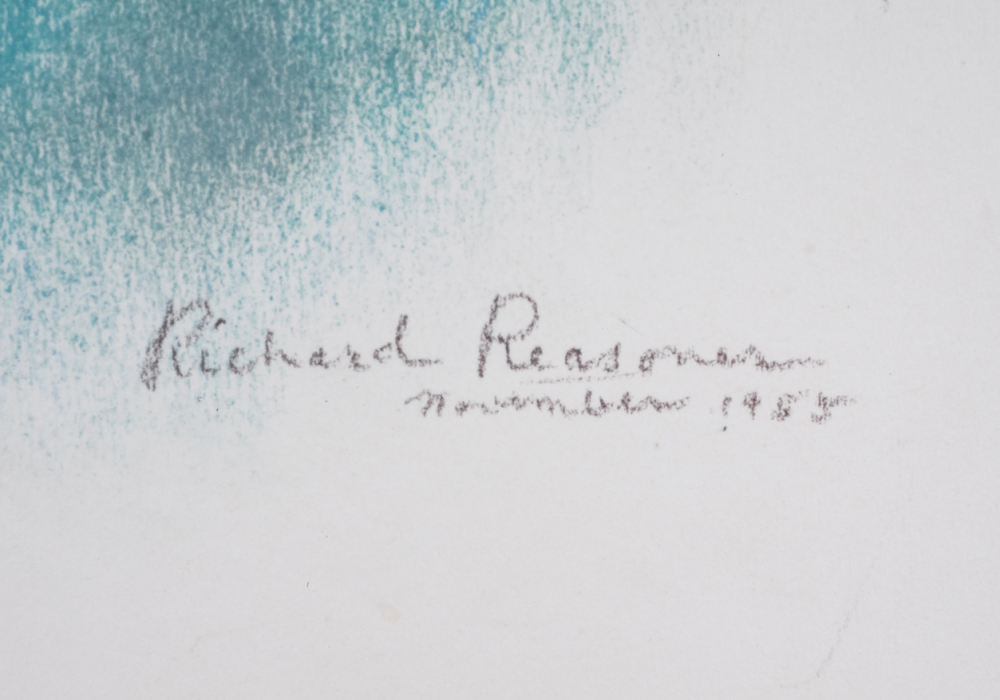 Richard Reasoner
November 1988